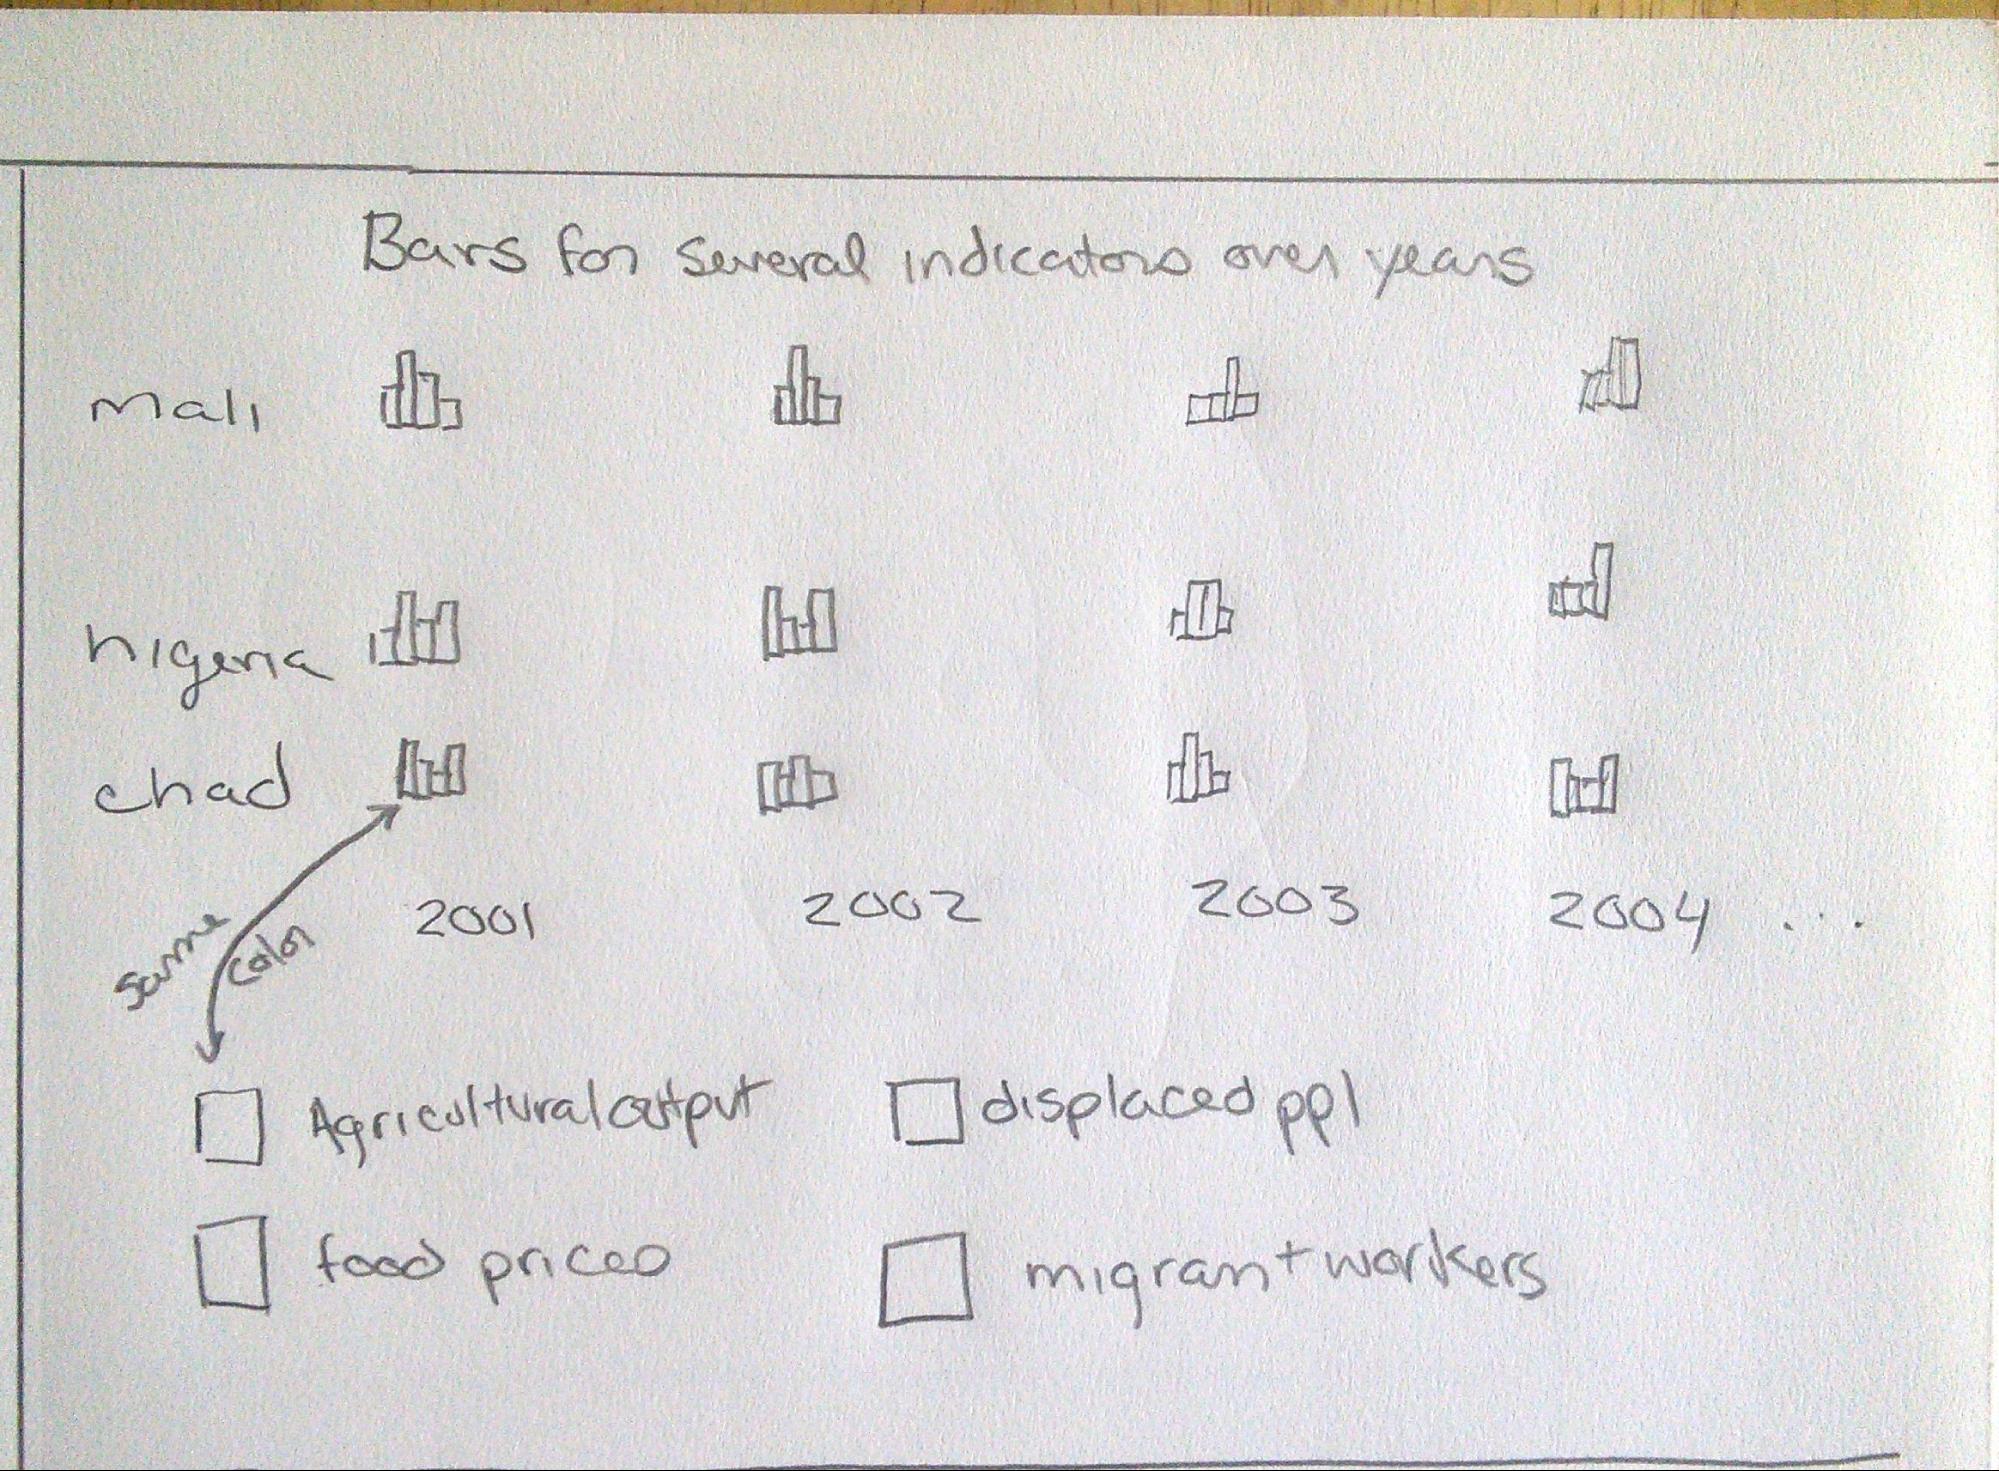 Bars for several indicators over years
mali
nigeria
chad
2001 2002 2003 2004 ...
same color
Agricultural output
displaced ppl
food prices
migrant workers